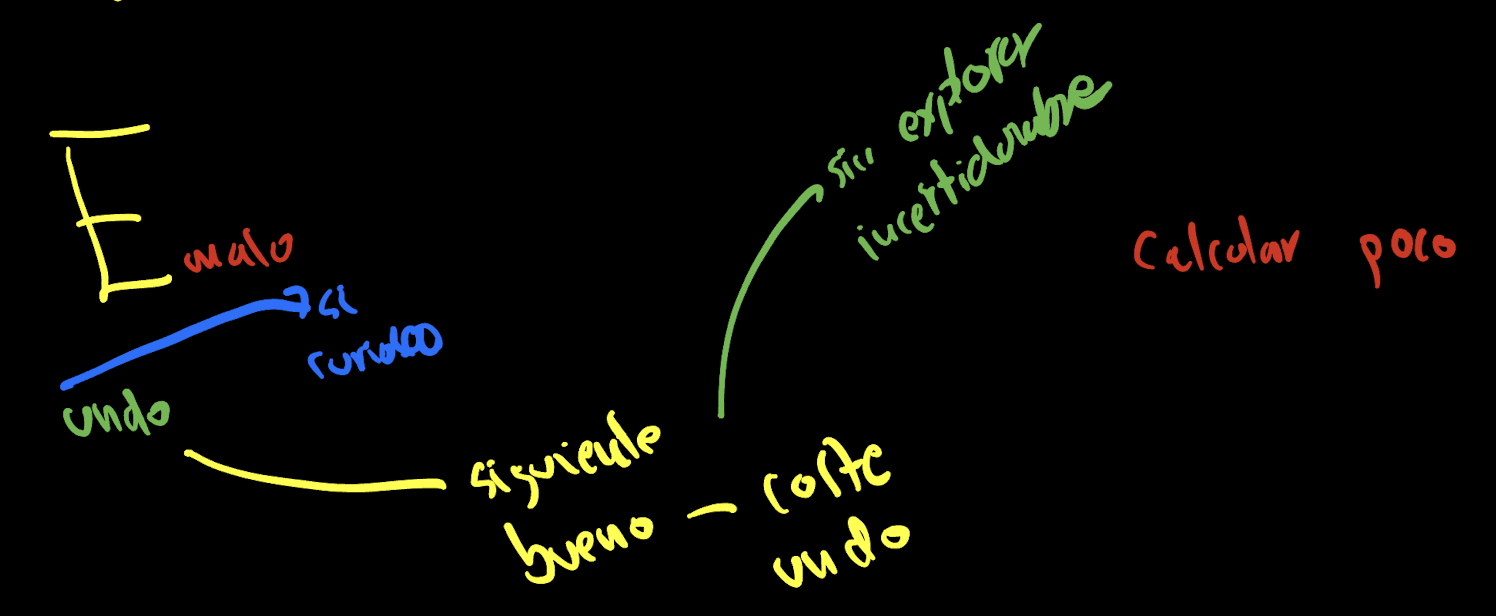 E
malo
si
undo
siguiente
bueno – corte
undo
sin explorar
incertidumbre
Calcular poco